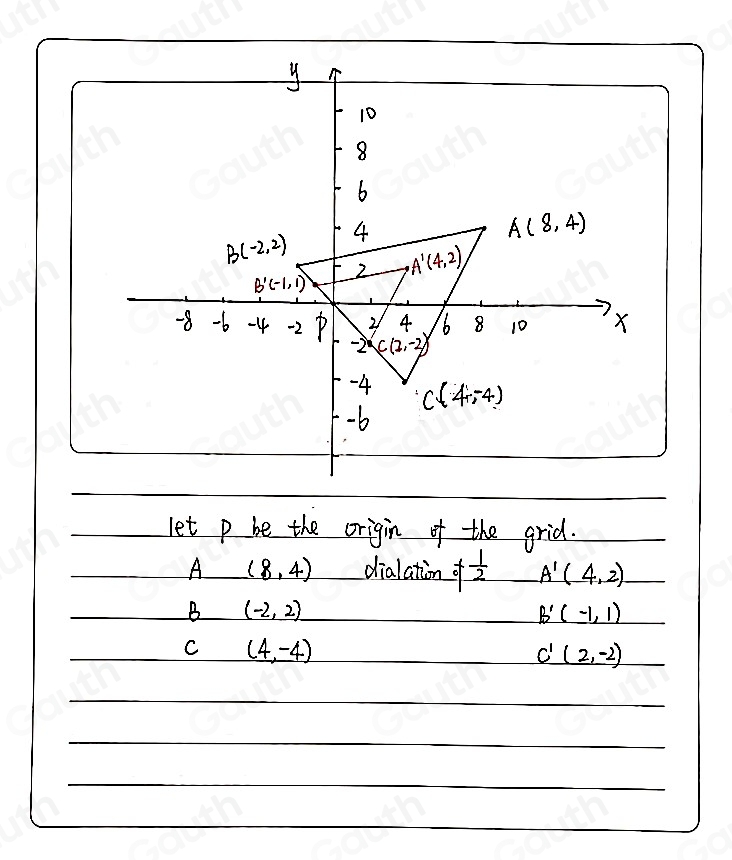 y
10
8
6
4
A(8,4)
B(-2,2)
2
A'(4,2)
B'(-1,1)
-8 -6 -4 -2 P 2 4 6 8 10 x
-2 C(2,-2)
-4
C(4,-4)
-6
let p be the origin of the grid.
A (8,4) dialation of 1/2 A'(4,2)
B (-2,2) B'(-1,1)
C (4,-4) C'(2,-2)
Gauth